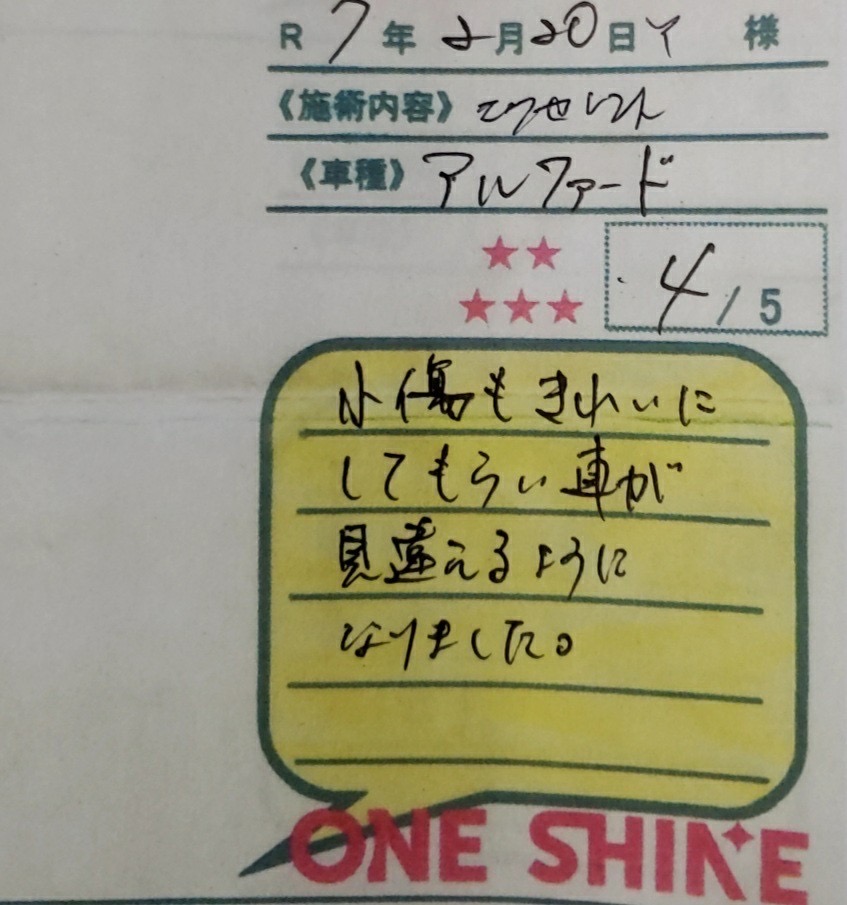 R 7年 2月20日 Y 様
《施術内容》
《車種》アルファード
4 / 5
小傷もきれいに
してもらい車が
見違えるように
なりました。
ONE SHINE